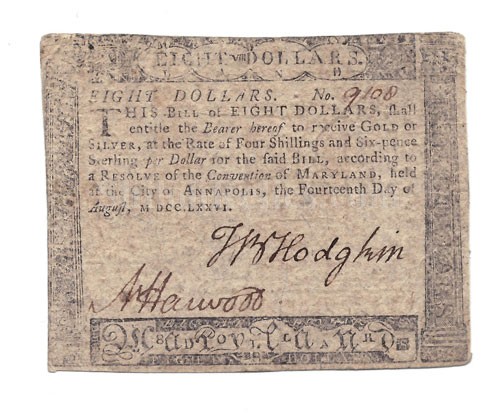 EIGHT VIII DOLLARS.
EIGHT DOLLARS. No. 9108
THIS BILL of EIGHT DOLLARS, ſhall
entitle the Bearer hereof to receive GOLD or
SILVER, at the Rate of Four Shillings and Six-pence
Sterling per Dollar for the ſaid BILL, according to
a RESOLVE of the Convention of MARYLAND, held
at the City of ANNAPOLIS, the Fourteenth Day of
Auguſt, M DCC,LXXVI.
Hodgkin
A Harwood.